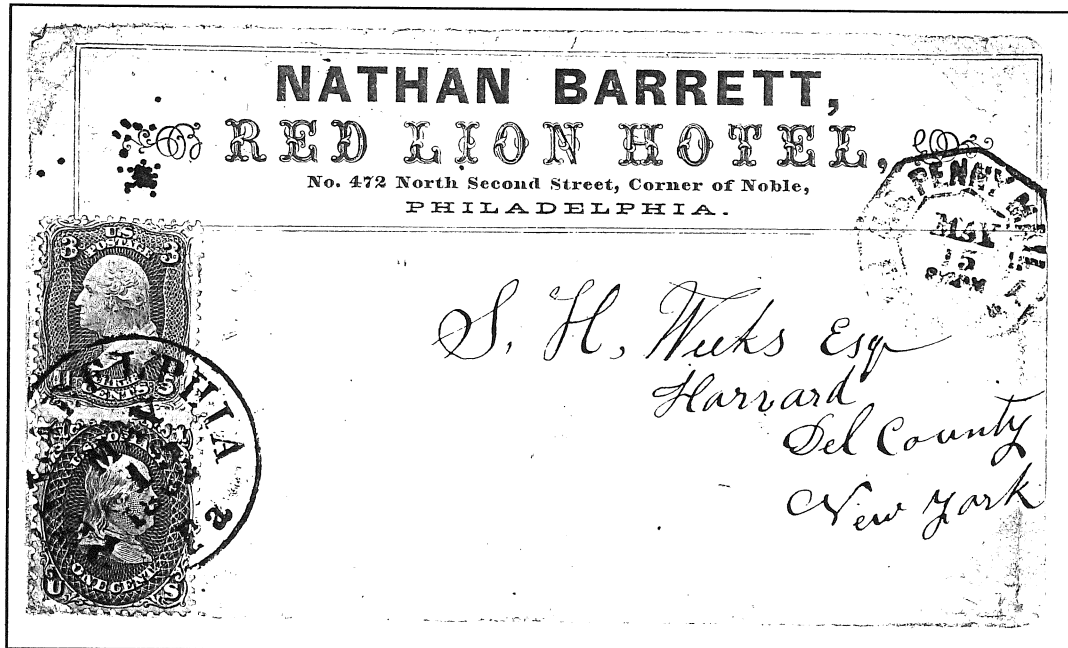 NATHAN BARRETT,
RED LION HOTEL,
No. 472 North Second Street, Corner of Noble,
PHILADELPHIA.
PENNY MAIL
MAY
15
U.S.
POSTAGE
3 3
CENTS
PHIA
ONE CENT
U S
S. H. Weeks Esq
Harvard
Del County
New York